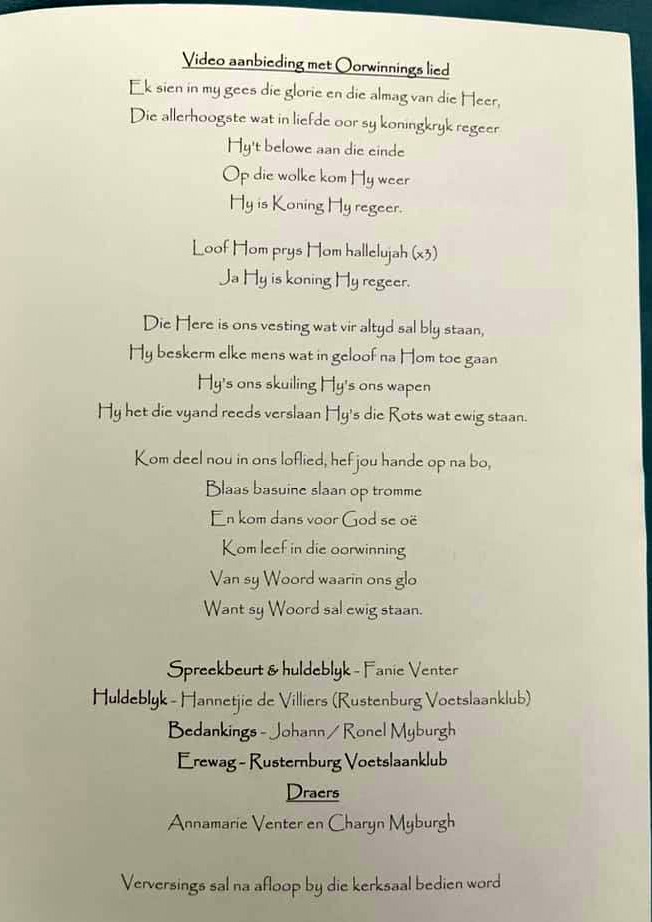 Video aanbieding met Oorwinnings lied
Ek sien in my gees die glorie en die almag van die Heer,
Die allerhoogste wat in liefde oor sy koningkryk regeer
Hy't belowe aan die einde
Op die wolke kom Hy weer
Hy is Koning Hy regeer.
Loof Hom prys Hom hallelujah (x3)
Ja Hy is koning Hy regeer.
Die Here is ons vesting wat vir altyd sal bly staan,
Hy beskerm elke mens wat in geloof na Hom toe gaan
Hy's ons skuiling Hy's ons wapen
Hy het die vyand reeds verslaan Hy's die Rots wat ewig staan.
Kom deel nou in ons loflied, hef jou hande op na bo,
Blaas basuine slaan op tromme
En kom dans voor God se oë
Kom leef in die oorwinning
Van sy Woord waarin ons glo
Want sy Woord sal ewig staan.
Spreekbeurt & huldeblyk - Fanie Venter
Huldeblyk - Hannetjie de Villiers (Rustenburg Voetslaanklub)
Bedankings - Johann / Ronel Myburgh
Erewag - Rusternburg Voetslaanklub
Draers
Annamarie Venter en Charyn Myburgh
Verversings sal na afloop by die kerksaal bedien word